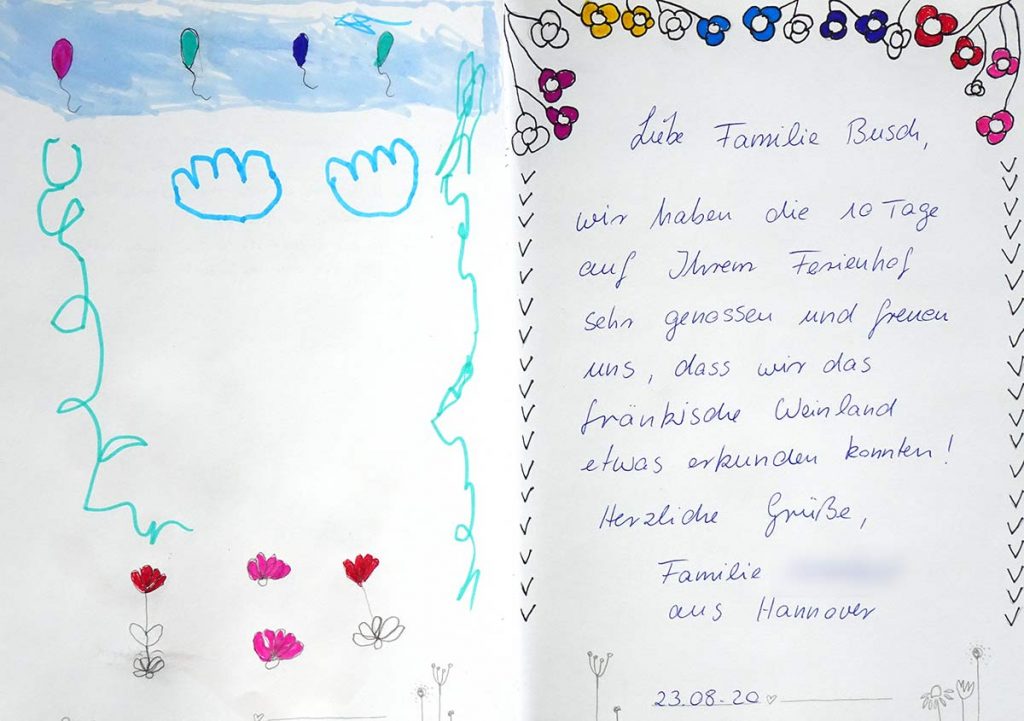 Liebe Familie Busch,
wir haben die 10 Tage
auf Ihrem Ferienhof
sehr genossen und freuen
uns, dass wir das
fränkische Weinland
etwas erkunden konnten!
Herzliche Grüße,
Familie
aus Hannover
23.08.20